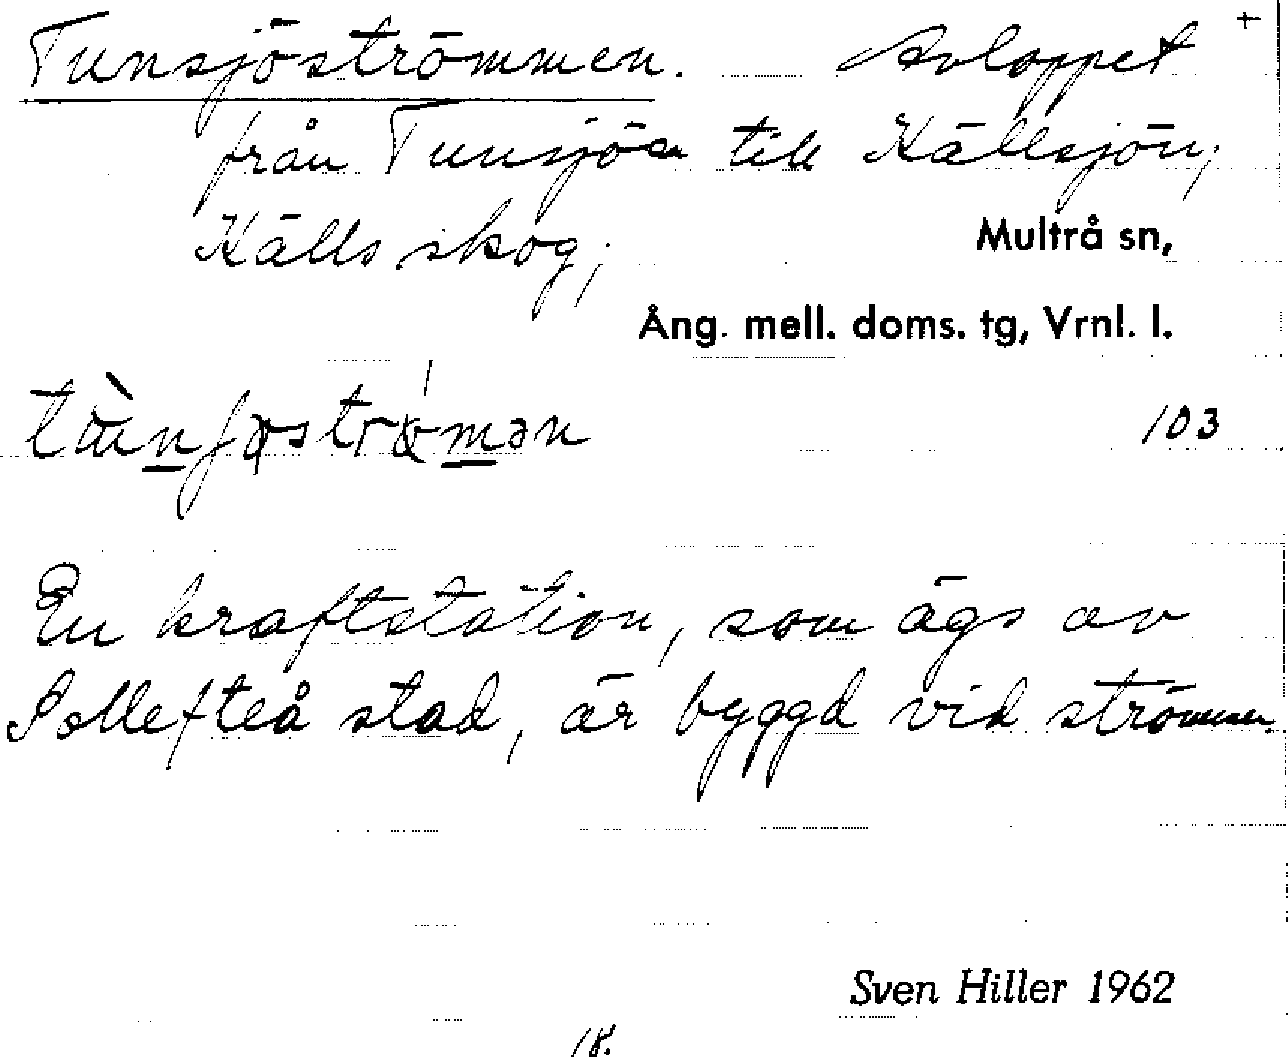 Tunsjöströmmen. Avloppet +
från Tunsjön till Källsjön,
Källs skog; Multrå sn,
Ång. mell. doms. tg, Vrnl. l.
103
En kraftstation, som ägs av
Sollefteå stad, är byggd vid strömmen.
Sven Hiller 1962
18.